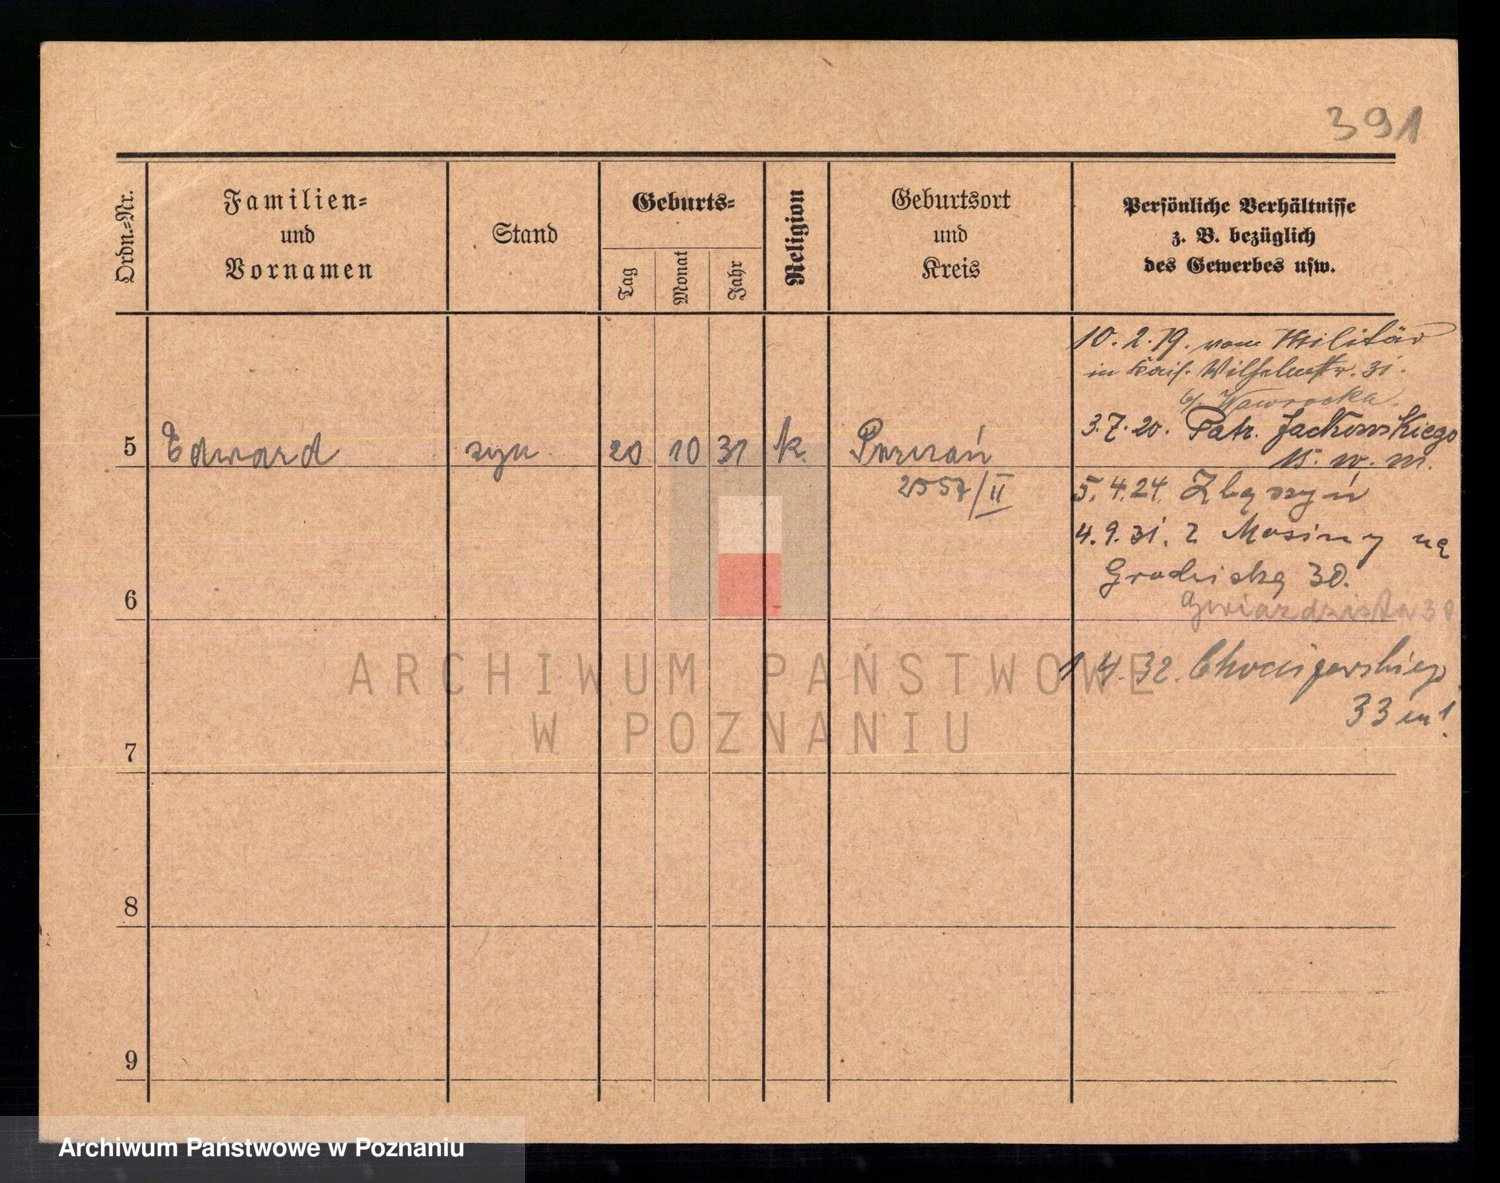 391
Ordn.-Nr.
Familien-
und
Vornamen
Stand
Geburts-
Tag
Monat
Jahr
Religion
Geburtsort
und
Kreis
Persönliche Verhältnisse
z. B. bezüglich
des Gewerbes usw.
10. 2. 19. vom Militär
in Kais. Wilhelmstr. 31.
b/ Nawrocka.
3. 7. 20. Patr. Jackowskiego
15. w. m.
5 Edward syn 20 10 31 k. Poznań
2557/II
5. 4. 24. Zbąszyń
4. 9. 31. z Mosiny na
Grodziską 30.
Gwiaździsta 30
6
1 4. 32.
33 m 1.
7
8
9
ARCHIWUM PAŃSTWOWE
W POZNANIU
Archiwum Państwowe w Poznaniu